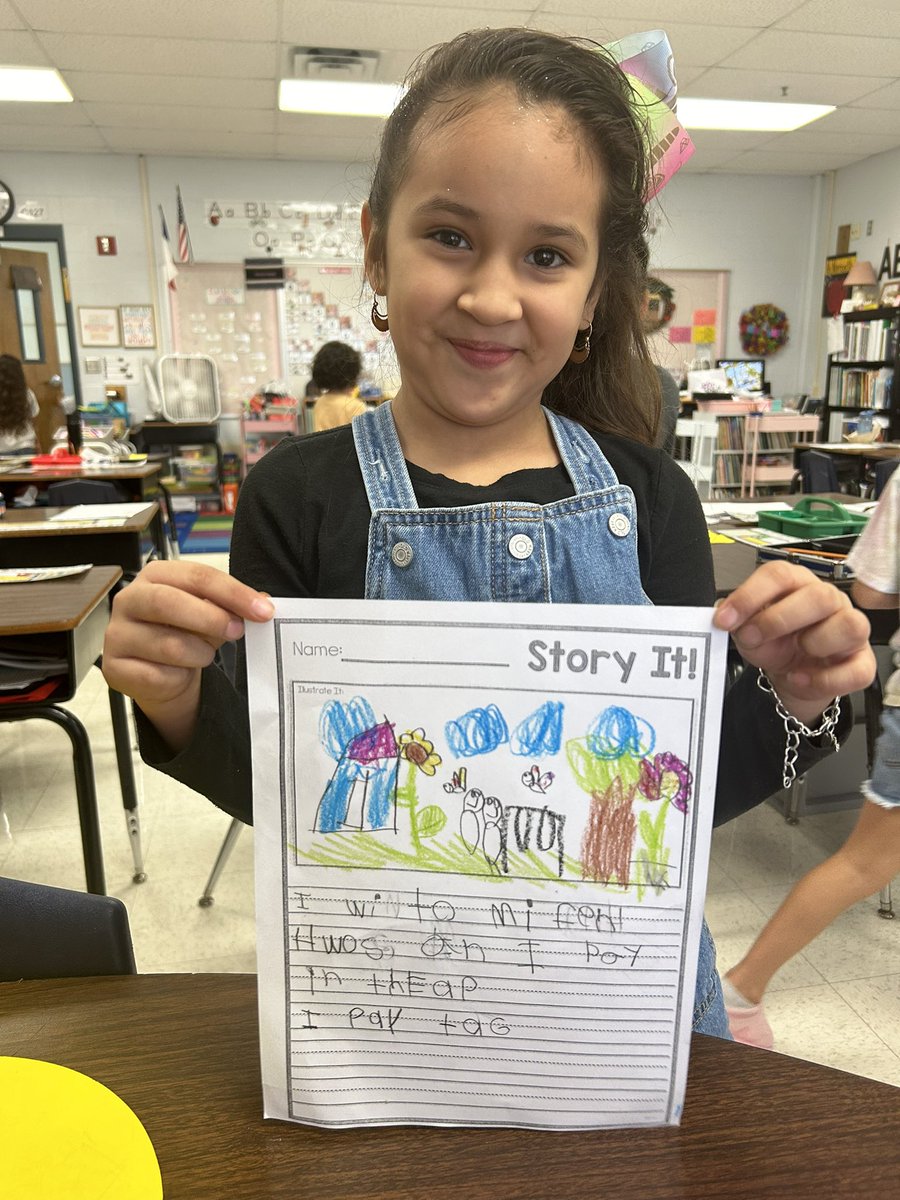 Aa Bb Cc
Name:
Story It!
Illustrate It:
I win to mi fren
Hwos an I Pay
In thEap
I PaY tag